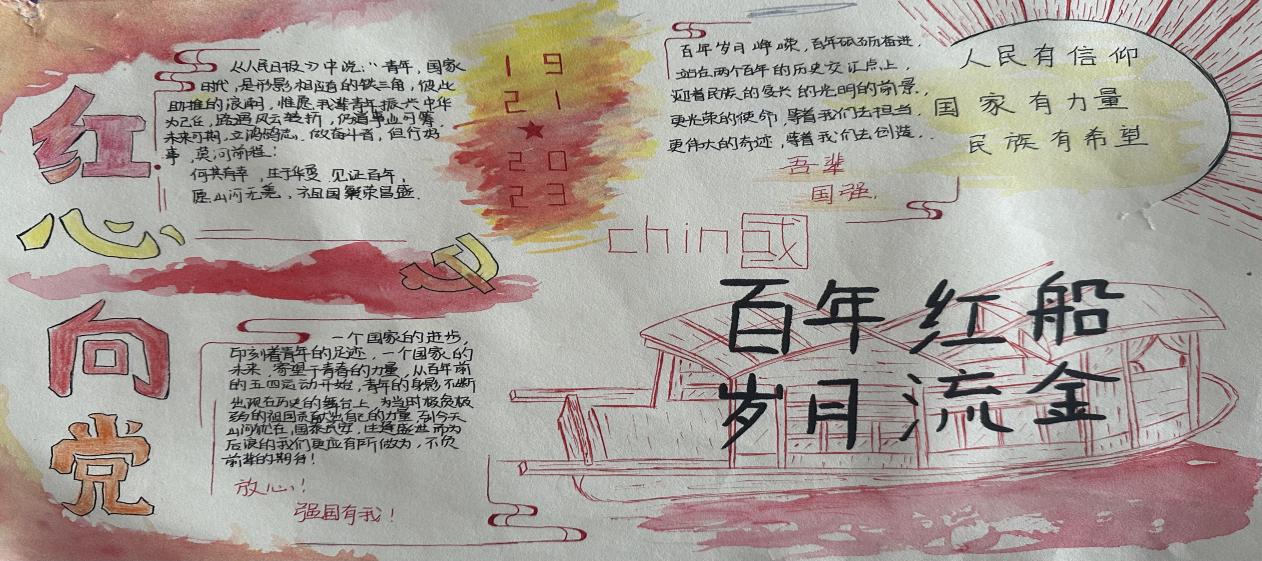 红
心
向
党
《人民日报》中说:“青年,国家
时代,是形影相随的铁三角,彼此
助推的浪潮,惟愿我辈青年振兴中华
为己任,路遇风云
未来可期,立鸿鹄志,做奋斗者,但行好
事,莫问前程!
何其有幸,生于华夏,见证百年,
愿山河无恙,祝祖国繁荣昌盛.
19
21
20
23
百年岁月峥嵘,百年砥砺奋进,
站在两个百年的历史交汇点上,
迎着民族的复兴的光明的前景,
更光荣的使命,等着我们去担当,
更伟大的奇迹,等着我们去创造..
吾辈
国强.
人民有信仰
国家有力量
民族有希望
chin国
百年红船
岁月流金
一个国家的进步,
印刻着青年的足迹,一个国家的
未来,寄望于青春的力量,从百年前
的五四运动开始,青年的身影不断
出现在历史的舞台上,为当时极贫极
弱的祖国贡献出自己的力量,到今天
山河犹在,国泰民安,生逢盛世而为
后浪的我们更应有所做为,不负
前辈的期待!
放心!
强国有我!